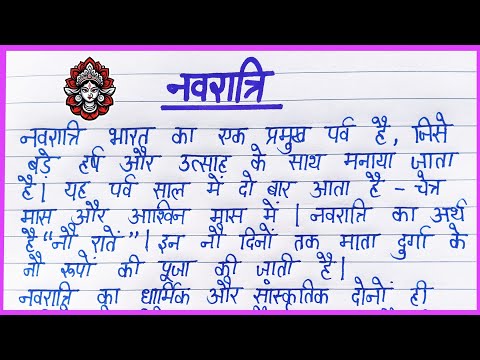 नवरात्रि
नवरात्रि भारत का एक प्रमुख पर्व है, जिसे
बड़े हर्ष और उत्साह के साथ मनाया जाता
है। यह पर्व साल में दो बार आता है – चैत्र
मास और आश्विन मास में। नवरात्रि का अर्थ
है "नौ रातें"। इन नौ दिनों तक माता दुर्गा के
नौ रूपों की पूजा की जाती है।
नवरात्रि का धार्मिक और सांस्कृतिक दोनों ही